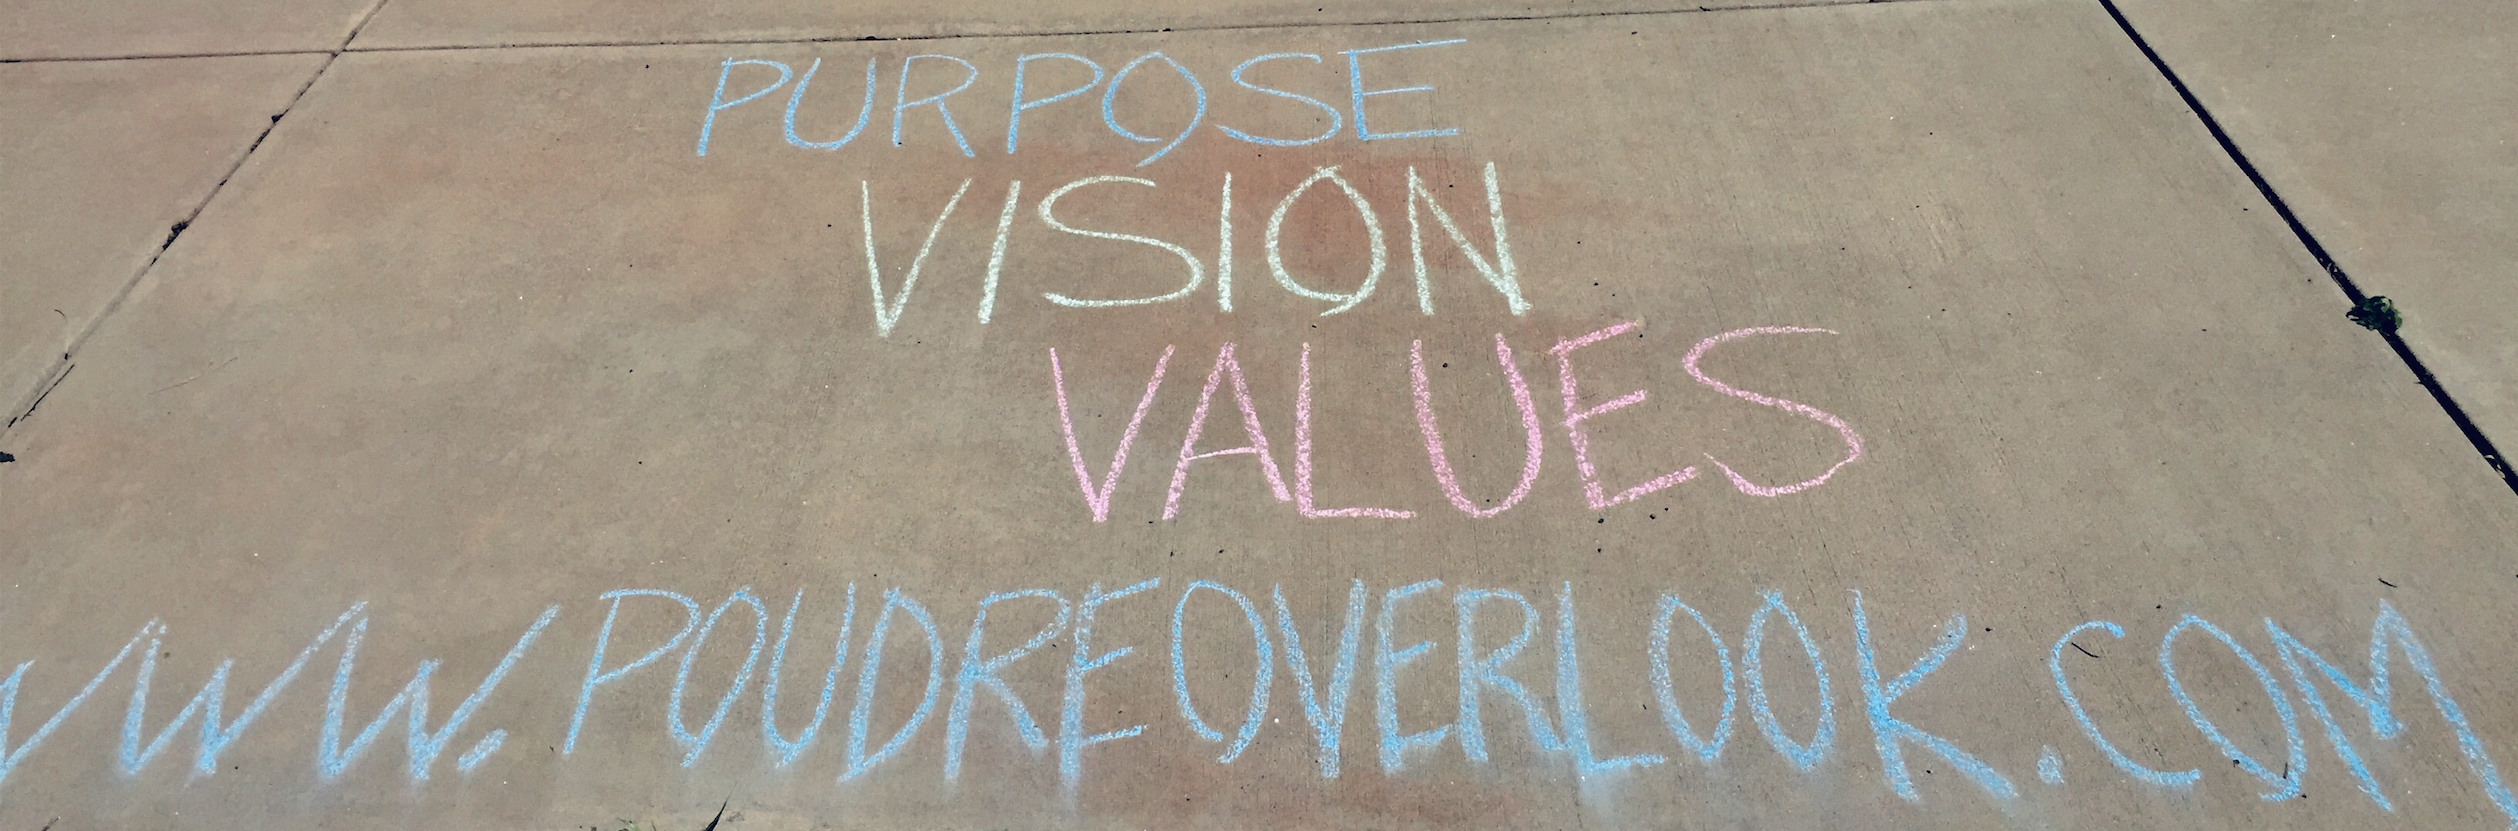 PURPOSE
VISION
VALUES
WWW.POUDREOVERLOOK.COM